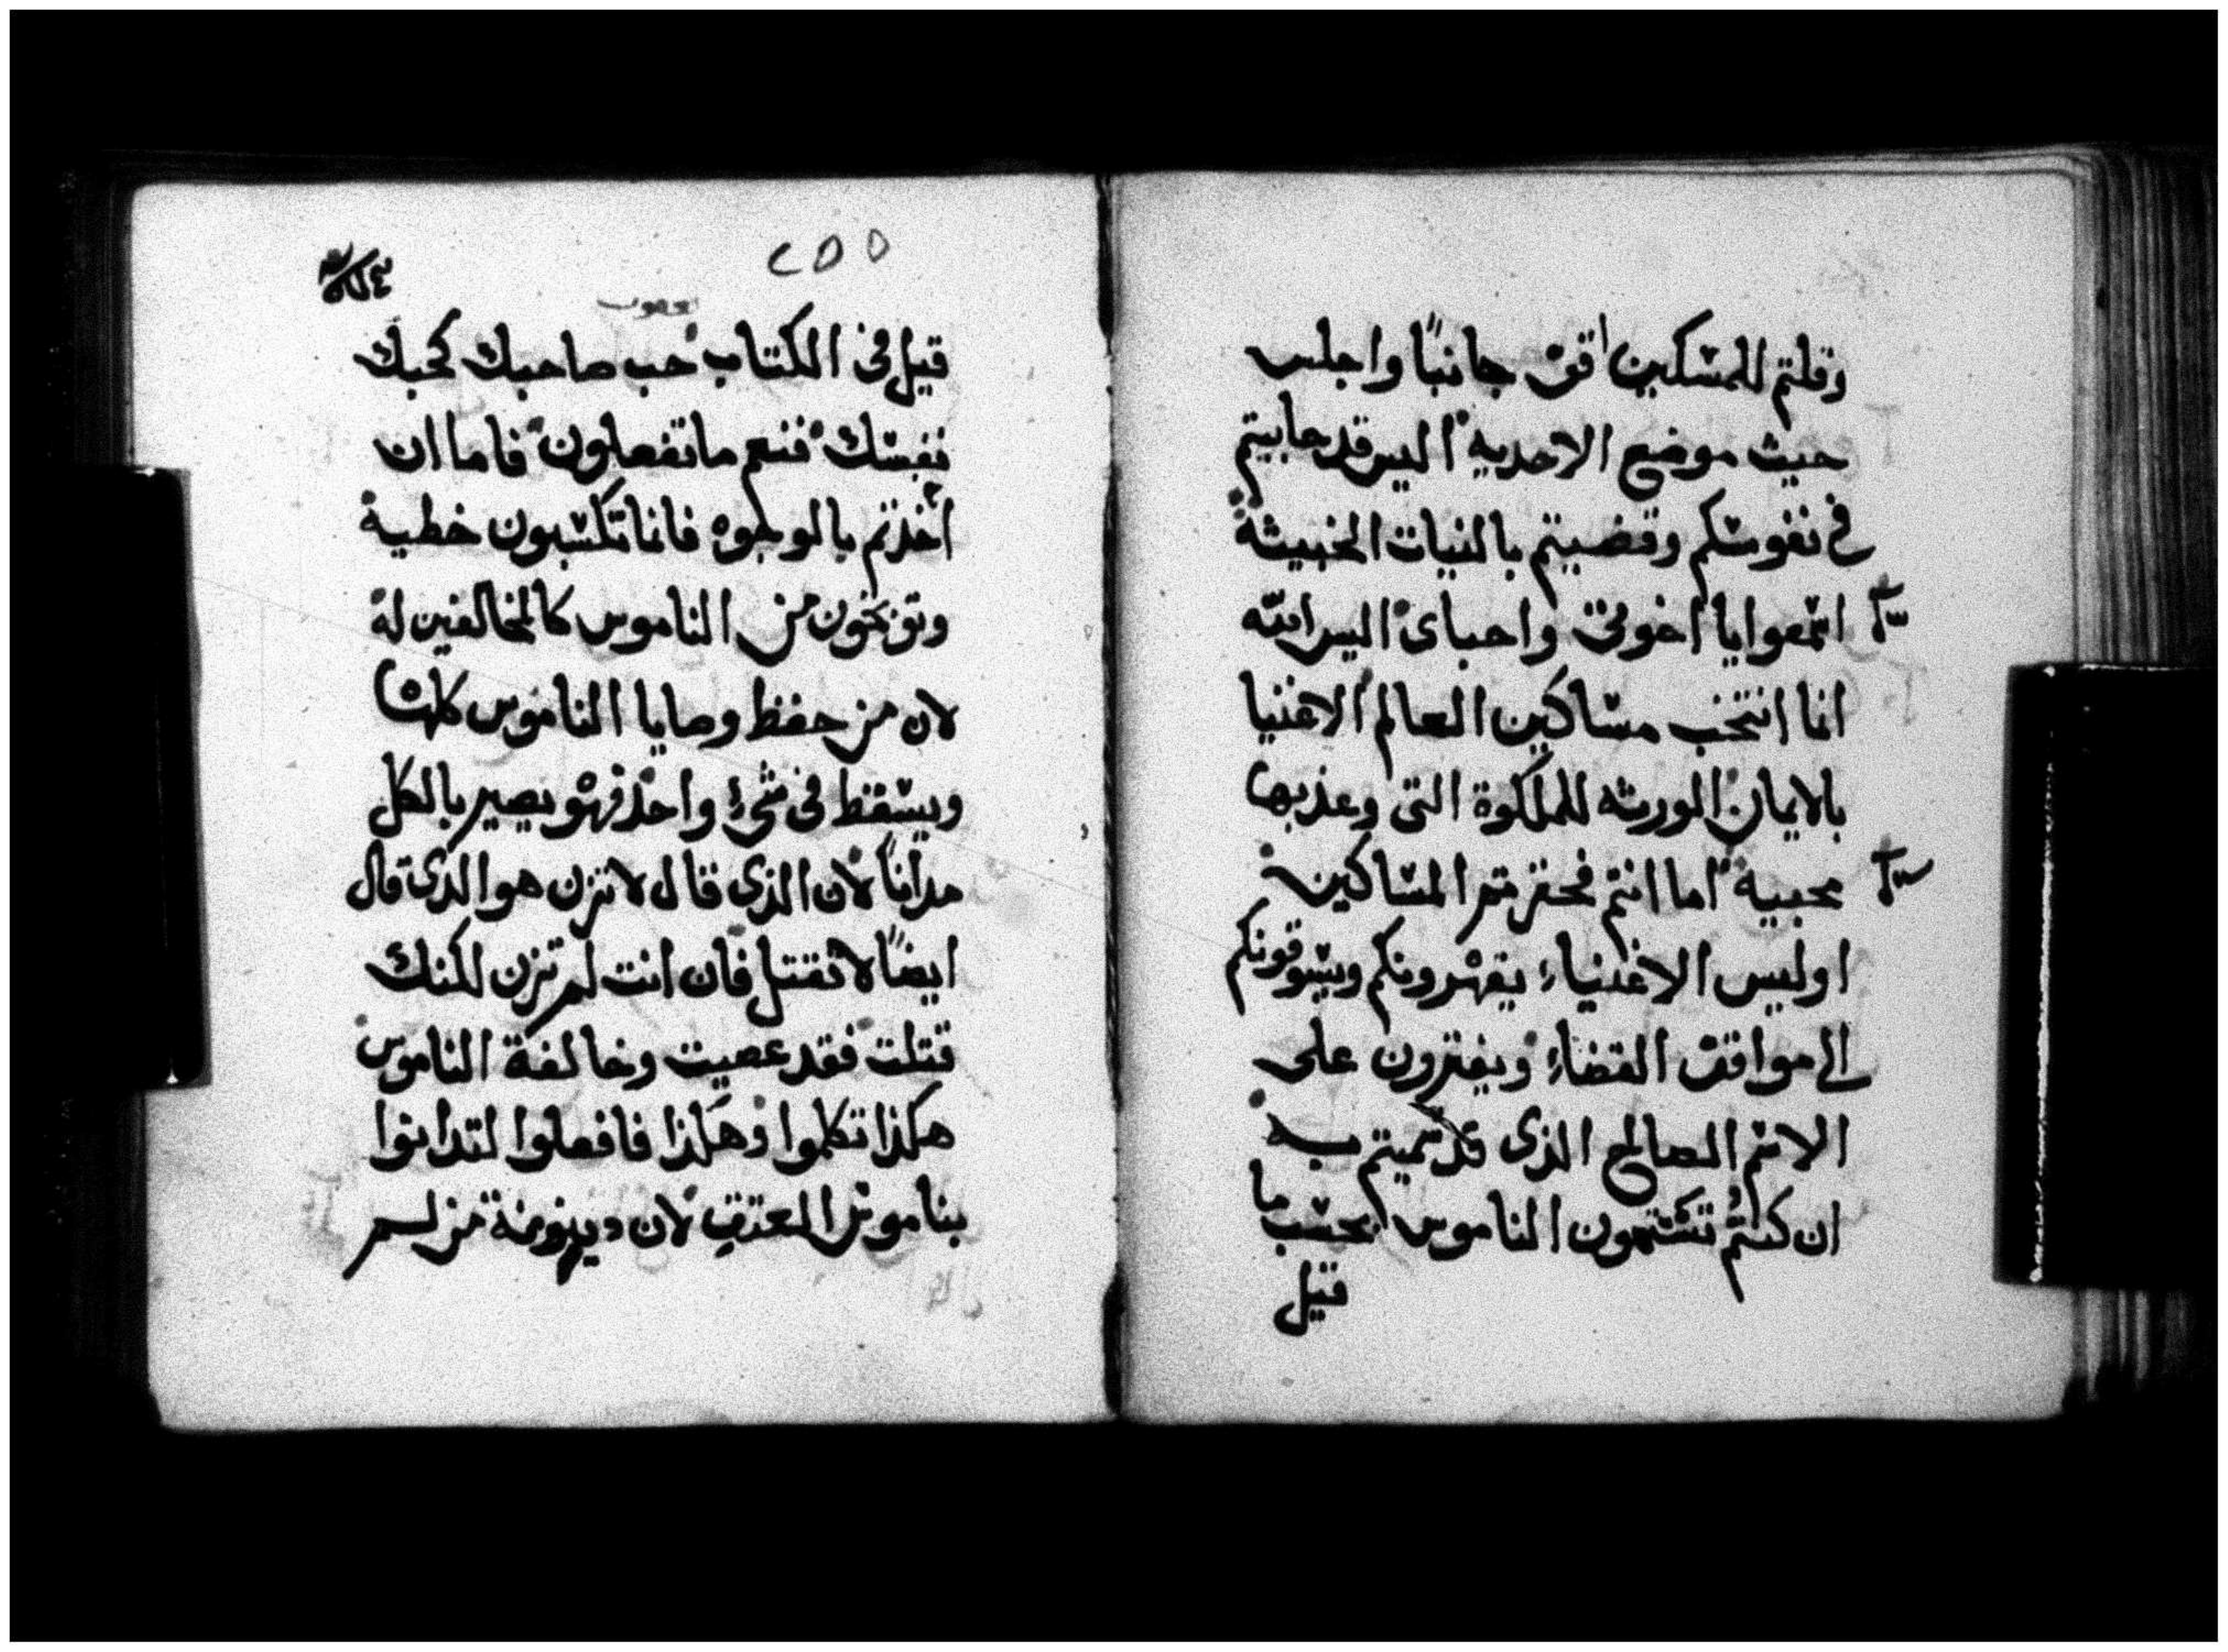 وقلتم للمسكين اقف جانبًا واجلس
حيث موضع الاحديه اليس قد حابيتم
في نفوسكم وقضيتم بالنيات الخبيثة
اسمعوا يا اخوتي واحباى اليس الله
انما انتخب مساكين العالم الاغنيا
بالايمان الورثه للملكوة التى وعد بها
محبيه اما انتم فحقرتم المساكين
اوليس الاغنياء يقهرونكم ويسوقونكم
الى مواقف القضاء ويفترون على
الاسم الصالح الذى قد سميتم به
ان كنتم تتمون الناموس بحسب ما
قيل
٢٥٥
يعقوب
قيل فى الكتاب حب صاحبك كحبك
نفسك فنعم ما تفعلون فاما ان
اخذتم بالوجوه فانما تكسبون خطية
وتوبخون من الناموس كالمخالفين له
لان من حفظ وصايا الناموس كلها
ويسقط فى شىء واحد فهو يصير بالكل
مدانًا لان الذى قال لا تزن هو الذى قال
ايضًا لا تقتل فان انت لم تزن لكنك
قتلت فقد عصيت وخالفة الناموس
هكذا تكلموا وهكذا فافعلوا لتدانوا
بناموس المعتق لان دينونة من لم